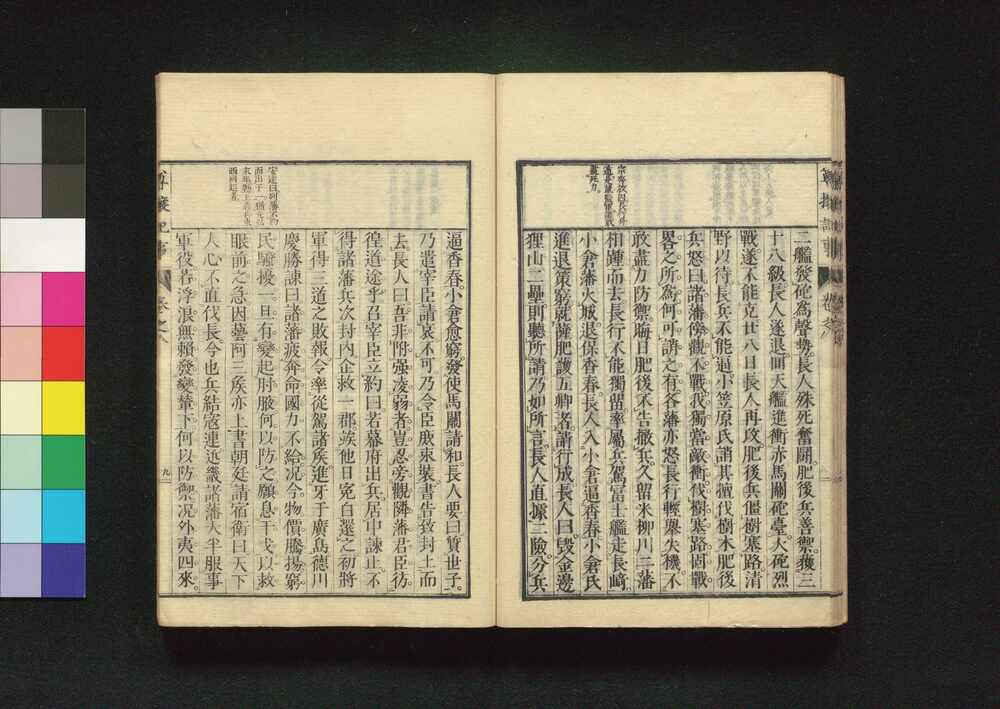 尊攘紀事
二艦發砲爲聲勢。長人殊死奮鬪。肥後兵善禦。獲三
十八級。長人遂退。回天艦進衝赤馬關砲臺。人砲烈
戰。遂不能克。廿八日長人再攻。肥後兵僵樹塞路。清
野以待。長兵不能過。小笠原氏誚其擅伐樹木。肥後
兵怒曰。諸藩傍觀不戰。我獨當敵衝。伐樹塞路。固戰
畧之所爲。何可誚之有。各藩亦怒長行輕擧失機。不
敢盡力防禦。晦日肥後不告撤兵。久留米柳川二藩
相踵而去。長行不能獨留。率屬兵駕富士艦走長崎。
小倉藩火城。退保香春。長人入小倉。逼香春。小倉氏
進退策窮。就薩肥護五卿者請行成。長人曰。毀金邊
狸山二壘。則聽所請。乃如所言。長人直據二險。分兵
逼香春。小倉愈窮。發使馬關請和。長人要曰。質世子。
乃遣宰臣請哀。不可。乃令臣庶束裝。書告致封土而
去。長人曰。吾非附强凌弱者。豈忍旁觀隣藩君臣彷
徨道途乎。召宰臣立約曰。若幕府出兵。居中諫止。不
得諸藩兵次封內。企救一郡。竢他日冤白還之。初將
軍得三道之敗報。令率從駕諸矦。進牙于廣島。德川
慶勝諫曰。諸藩疲奔命。國力不給。况今物價騰揚。窮
民騷擾。一旦有變起肘腋。何以防之。願息干戈。以救
眼前之急。因藝阿三矦亦上書朝廷。請宿衛曰。天下
人心不直伐長。今也兵結寇連。近畿諸藩大半服事
軍役。若浮浪無賴。發變輦下。何以防禦。况外夷四來。
尊攘紀事
卷之八
九